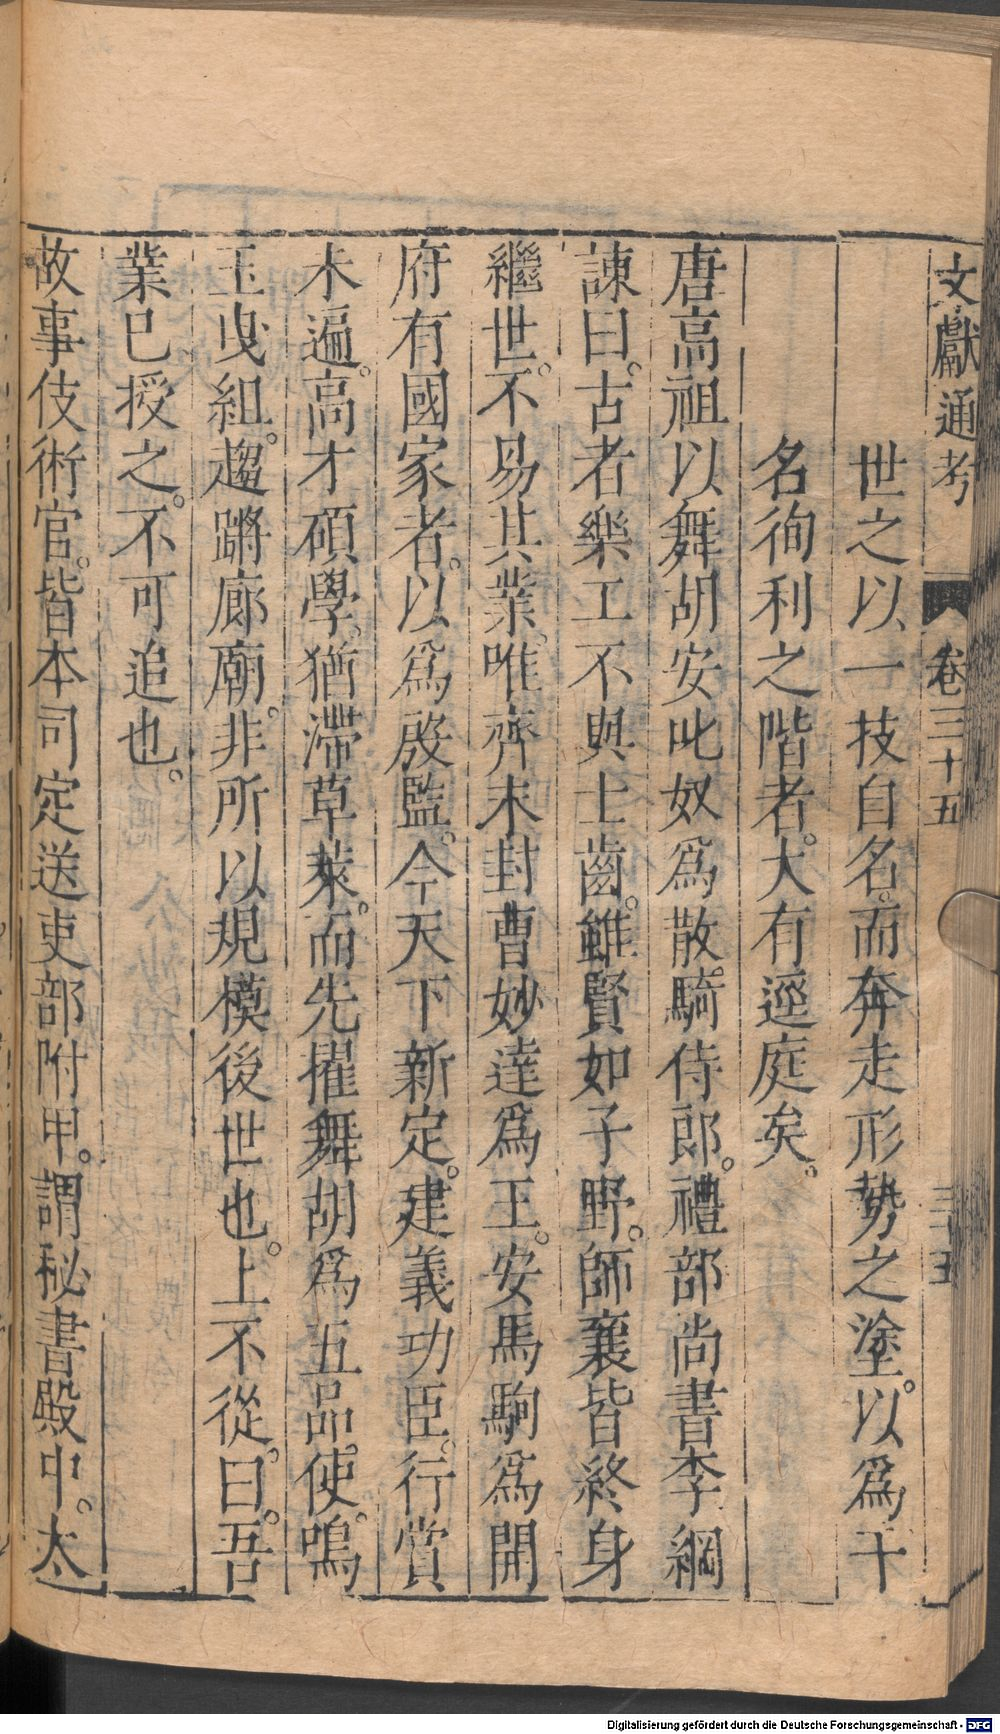 文獻通考 卷三十五 三十五
世之以一技自名。而奔走形勢之塗。以爲干
名徇利之階者。大有逕庭矣。
唐高祖以舞胡安叱奴爲散騎侍郎。禮部尚書李綱
諫曰。古者樂工不與士齒。雖賢如子野。師襄皆終身
繼世。不易其業。唯齊末封曹妙達爲王。安馬駒爲開
府有國家者。以爲殷監。今天下新定。建義功臣。行賞
未遍。高才碩學。猶滯草萊。而先擢舞胡爲五品。使鳴
玉曳組。趨蹡廊廟。非所以規模後世也。上不從。曰。吾
業已授之。不可追也。
故事伎術官。皆本司定送吏部附甲。謂秘書殿中。太
Digitalisierung gefördert durch die Deutsche Forschungsgemeinschaft - DFG